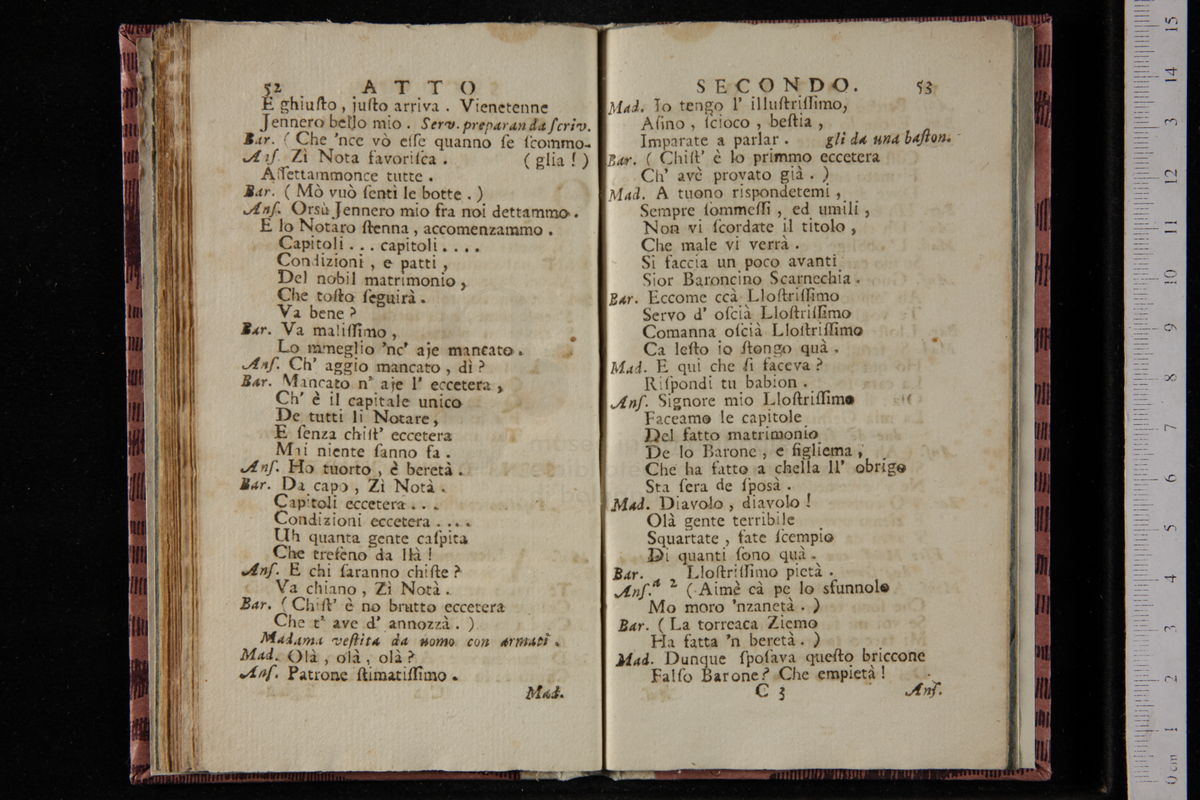 52 ATTO
E ghiuſto , juſto arriva . Vienetenne
Jennero bello mio . Serv. preparan da ſcriv.
Bar. ( Che 'nce vò eſſe quanno ſe ſcommo-
Anſ. Zì Nota favoriſca . ( glia ! )
Aſſettammonce tutte .
Bar. ( Mò vuò ſentì le botte . )
Anſ. Orsù Jennero mio fra noi dettammo .
E lo Notaro ſtenna , accomenzammo .
Capitoli . . . capitoli . . . .
Condizioni , e patti ,
Del nobil matrimonio ,
Che toſto ſeguirà .
Va bene ?
Bar. Va maliſſimo ,
Lo mmeglio 'nc' aje mancato .
Anſ. Ch' aggio mancato , dì ?
Bar. Mancato n' aje l' eccetera ,
Ch' è il capitale unico
De tutti li Notare ,
E ſenza chiſt' eccetera
Mai niente ſanno fa .
Anſ. Ho tuorto , è beretà .
Bar. Da capo , Zì Notà .
Capitoli eccetera . . .
Condizioni eccetera . . . .
Uh quanta gente caſpita
Che treſeno da llà !
Anſ. E chi ſaranno chiſte ?
Va chiano , Zì Notà .
Bar. ( Chiſt' è no brutto eccetera
Che t' ave d' annozzà . )
Madama veſtita da uomo con armati .
Mad. Olà , olà , olà ?
Anſ. Patrone ſtimatiſſimo .
Mad.
SECONDO. 53
Mad. Io tengo l' illuſtriſſimo,
Aſino , ſcioco , beſtia ,
Imparate a parlar . gli da una baſton.
Bar. ( Chiſt' è lo primmo eccetera
Ch' avè provato già . )
Mad. A tuono rispondetemi ,
Sempre ſommeſſi , ed umili ,
Non vi ſcordate il titolo ,
Che male vi verrà .
Si faccia un poco avanti
Sior Baroncino Scarnechia .
Bar. Eccome ccà Lloſtriſſimo
Servo d' oſcià Lloſtriſſimo
Comanna oſcià Lloſtriſſimo
Ca leſto io ſtongo quà .
Mad. E quì che ſi faceva ?
Riſpondi tu babion .
Anſ. Signore mio Lloſtriſſimo
Faceamo le capitole
Del fatto matrimonio
De lo Barone , e figliema ,
Che ha fatto a chella ll' obrigo
Sta ſera de ſposà .
Mad. Diavolo , diavolo !
Olà gente terribile
Squartate , fate ſcempio
Di quanti ſono quà .
Bar. Lloſtriſſimo pietà .
Anſ. a 2 ( Aimè cà pe lo sfunnolo
Mo moro 'nzanetà . )
Bar. ( La torreaca Ziemo
Ha fatta 'n beretà . )
Mad. Dunque ſpoſava queſto briccone
Falſo Barone ? Che empietà !
C 3 Anſ.